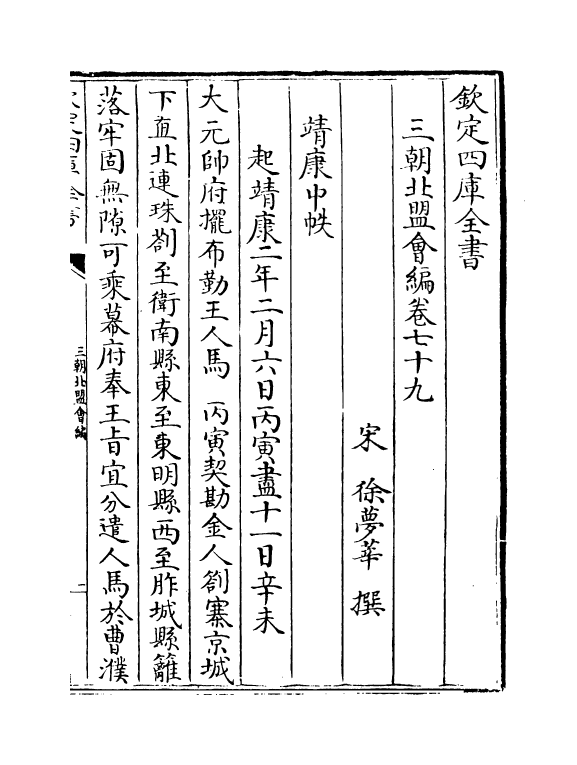 欽定四庫全書
三朝北盟會編卷七十九
宋　徐夢莘　撰
靖康中帙
起靖康二年二月六日丙寅盡十一日辛未
大元帥府擺布勤王人馬　丙寅契勘金人劄寨京城
下直北連珠劄至衛南縣東至東明縣西至胙城縣籬
落牢固無隙可乗幕府奉王㫖宜分遣人馬於曹濮
三朝北盟會編